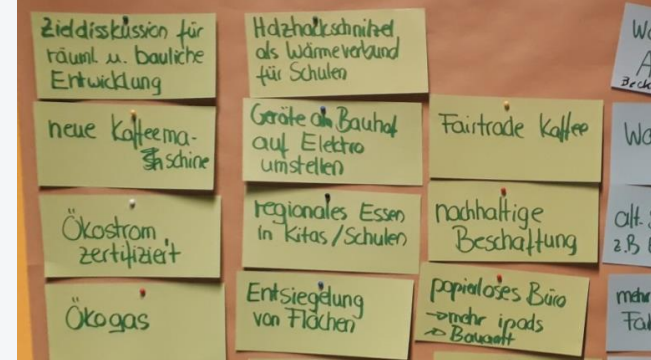 Zieldiskussion für
räuml. u. bauliche
Entwicklung
neue Kaffeema-
schine
Ökostrom
zertifiziert
Ökogas
Holzhackschnitzel
als Wärmeverbund
für Schulen
Geräte am Bauhof
auf Elektro
umstellen
regionales Essen
in Kitas/Schulen
Entsiegelung
von Flächen
Fairtrade Kaffee
nachhaltige
Beschaffung
papierloses Büro
→ mehr ipads
→ Bauamt
alt.
z.B
mehr